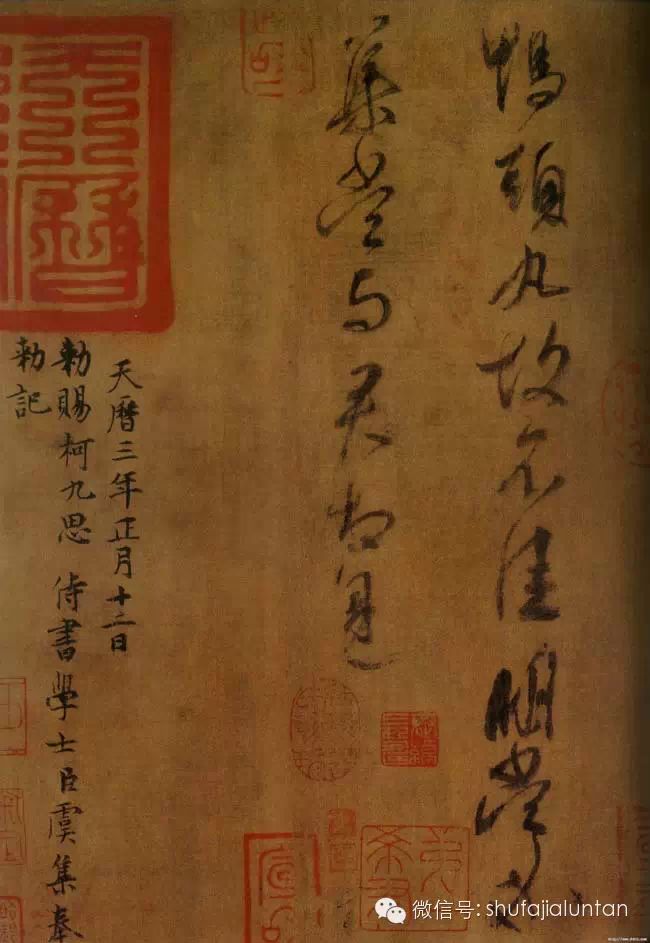 鴨頭丸故不佳明當必
集當与君相見
天曆三年正月十二日
勅賜柯九思 侍書學士臣虞集奉
勅記
天曆
微信号: shufajialuntan